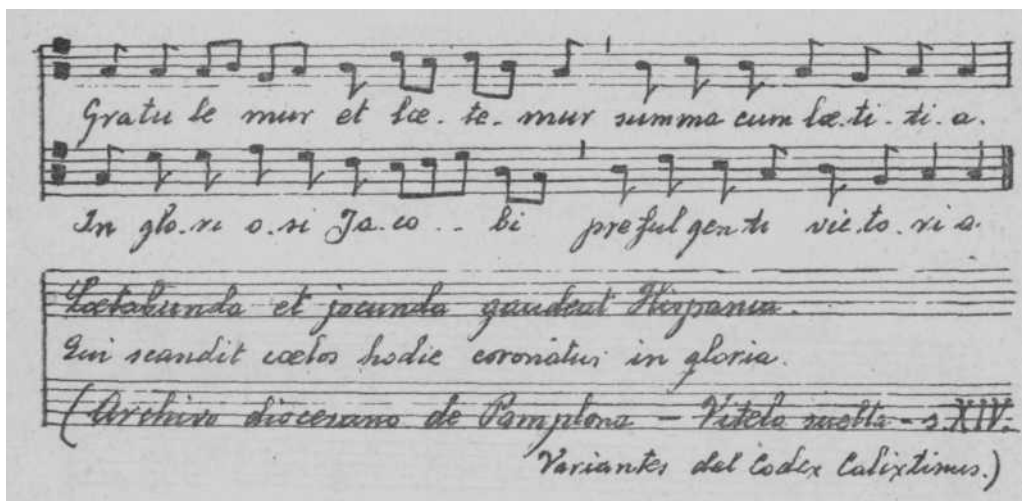 Gratu le mur et læ. te. mur summa cum læ. ti. ti. a.
In glo. ri o. si Ja. co . . bi preful gen ti vic. to. ri a.
Lætabunda et jocunda gaudeat Hispania.
Qui scandit cœlos hodie coronatus in gloria.
(Archivo diocesano de Pamplona — Vitela suelta - s. XIV.
Variantes del Codex Calixtinus.)